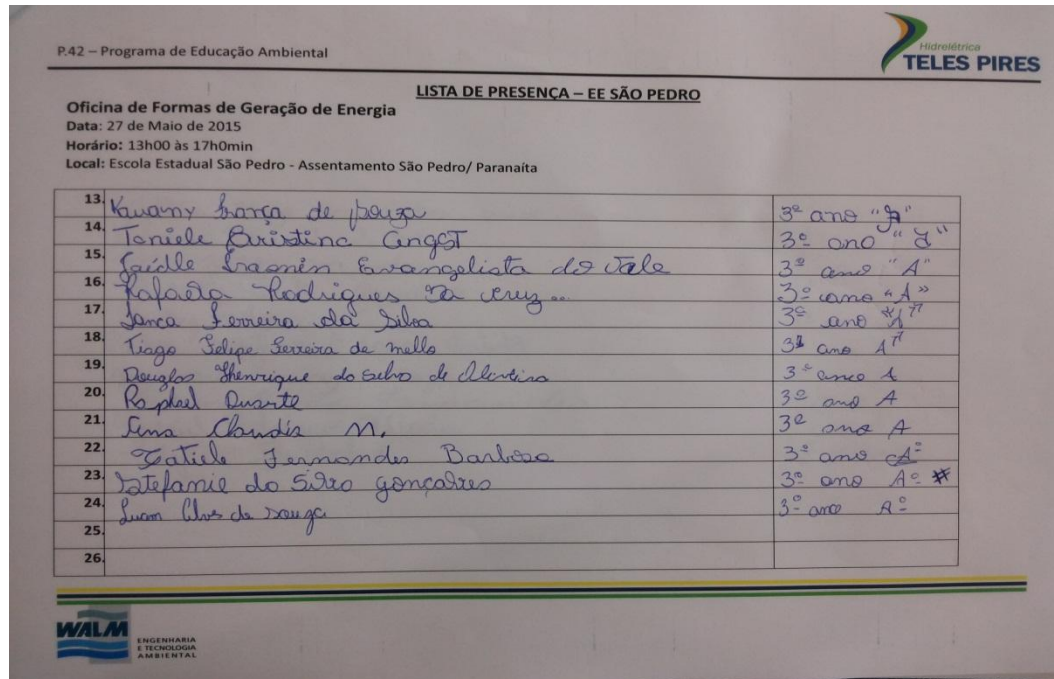 P.42 – Programa de Educação Ambiental
Hidrelétrica
TELES PIRES
LISTA DE PRESENÇA – EE SÃO PEDRO
Oficina de Formas de Geração de Energia
Data: 27 de Maio de 2015
Horário: 13h00 às 17h0min
Local: Escola Estadual São Pedro - Assentamento São Pedro/ Paranaíta
13. Kauany França de Souza 3º ano
14. Toniele Cristina Angst 3º ano
15. Evangelista do Vale 3º ano "A"
16. Rafaela Rodrigues da Cruz... 3º ano "A"
17. Ferreira da Silva 3º ano "A"
18. Tiago Felipe Ferreira de mello 3º ano A"
19. Douglas Henrique da Silva de Oliveira 3º ano A
20. Raphael Duarte 3º ano A
21. Ana Claudia M. 3º ano A
22. Tatiele Fernandes Barbosa 3º ano Aº
23. Estefanie da Silva gonçalves 3º ano Aº #
24. Luam Alves de Souza 3º ano Aº
25.
26.
WALM
ENGENHARIA
E TECNOLOGIA
AMBIENTAL